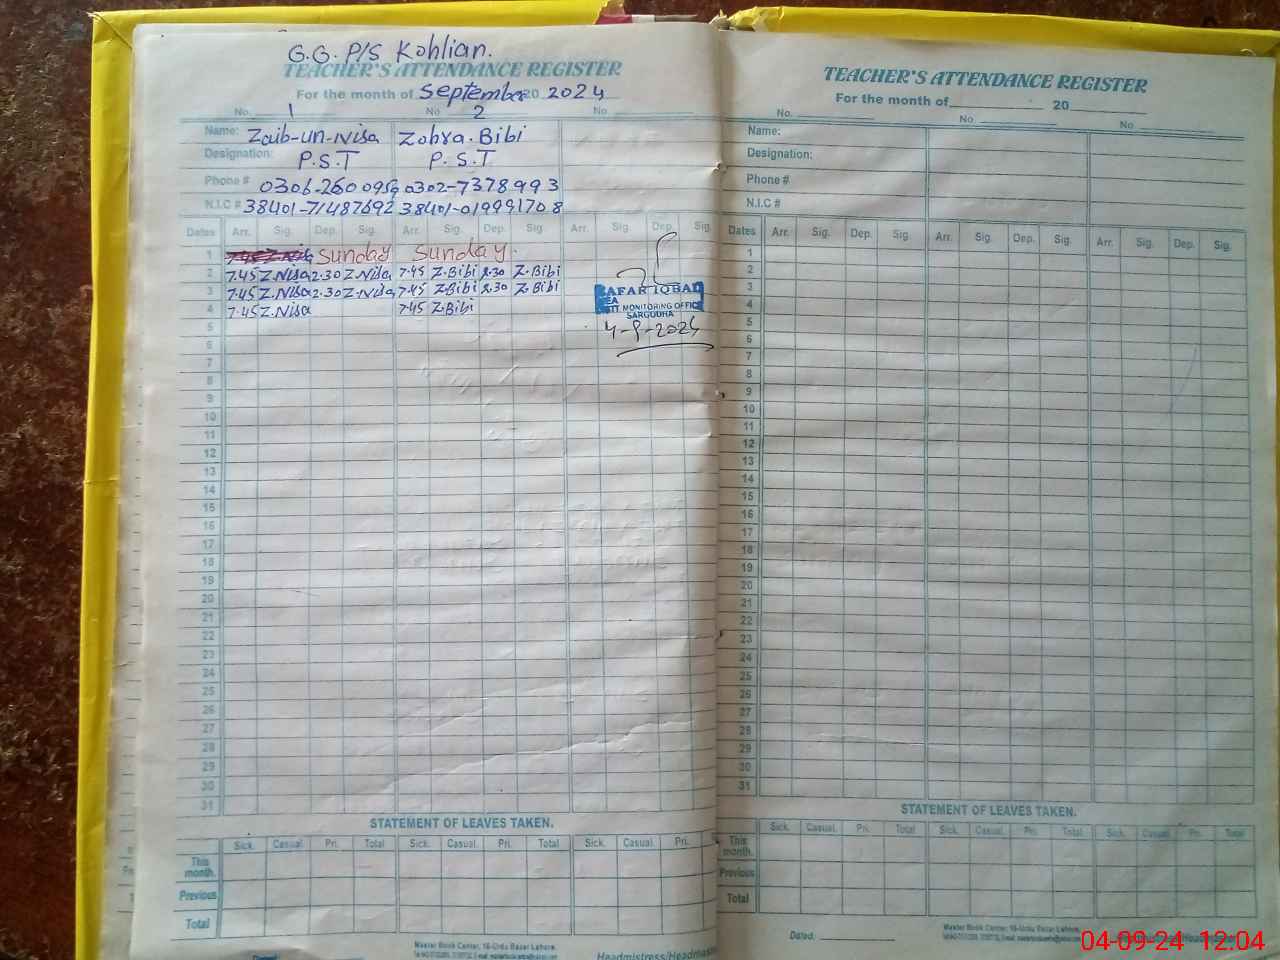 G.G. P/S Kohlian.
TEACHER'S ATTENDANCE REGISTER
For the month of September 20 2024
No. 1 No 2 No.
Name: Zaib-un-Nisa Zohra Bibi
Designation: P.S.T P.S.T
Phone # 0306-2600959 0302-7378993
N.I.C # 38401-71487692 38401-01999170.8
Dates Arr. Sig. Dep. Sig. Arr. Sig. Dep. Sig. Arr. Sig. Dep. Sig.
1 Sunday Sunday.
2 7.45 Z.Nisa 2.30 Z.Nisa 7.45 Z.Bibi 2.30 Z.Bibi
3 7.45 Z.Nisa 2.30 Z.Nisa 7.45 Z.Bibi 2.30 Z.Bibi
4 7.45 Z.Nisa 7.45 Z.Bibi
AFAR IQBAL
MONITORING OFFICE
SARGODHA
4-9-2024
5
6
7
8
9
10
11
12
13
14
15
16
17
18
19
20
21
22
23
24
25
26
27
28
29
30
31
STATEMENT OF LEAVES TAKEN.
Sick. Casual. Pri. Total Sick. Casual. Pri. Total Sick. Casual. Pri.
This month.
Previous
Total
Master Book Center, 16-Urdu Bazar Lahore.
Headmistress/Headmas
TEACHER'S ATTENDANCE REGISTER
For the month of 20
No. No No
Name:
Designation:
Phone #
N.I.C #
Dates Arr. Sig. Dep. Sig. Arr. Sig. Dep. Sig. Arr. Sig. Dep. Sig.
1
2
3
4
5
6
7
8
9
10
11
12
13
14
15
16
17
18
19
20
21
22
23
24
25
26
27
28
29
30
31
STATEMENT OF LEAVES TAKEN.
Sick. Casual. Pri. Total Sick. Casual. Pri. Total Sick. Casual. Pri. Total
This month.
Previous
Total
Dated:
Master Book Center, 16-Urdu Bazar Lahore.
04-09-24 12:04